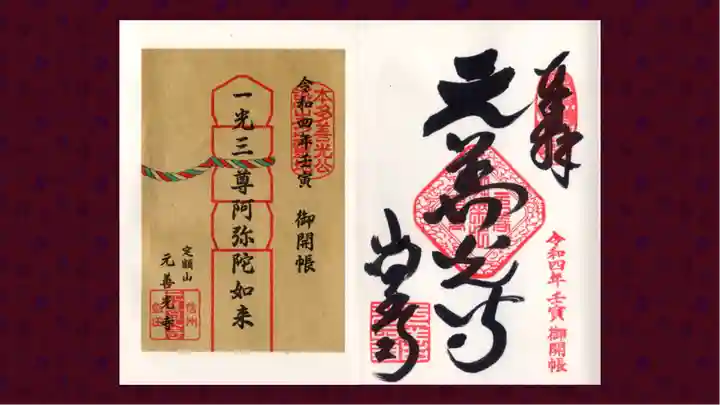 奉拝
元善光寺
令和四年 壬寅 御開帳
本多善光公
令和四年壬寅 御開帳
一光三尊阿弥陀如来
定額山
元善光寺
信州
飯田